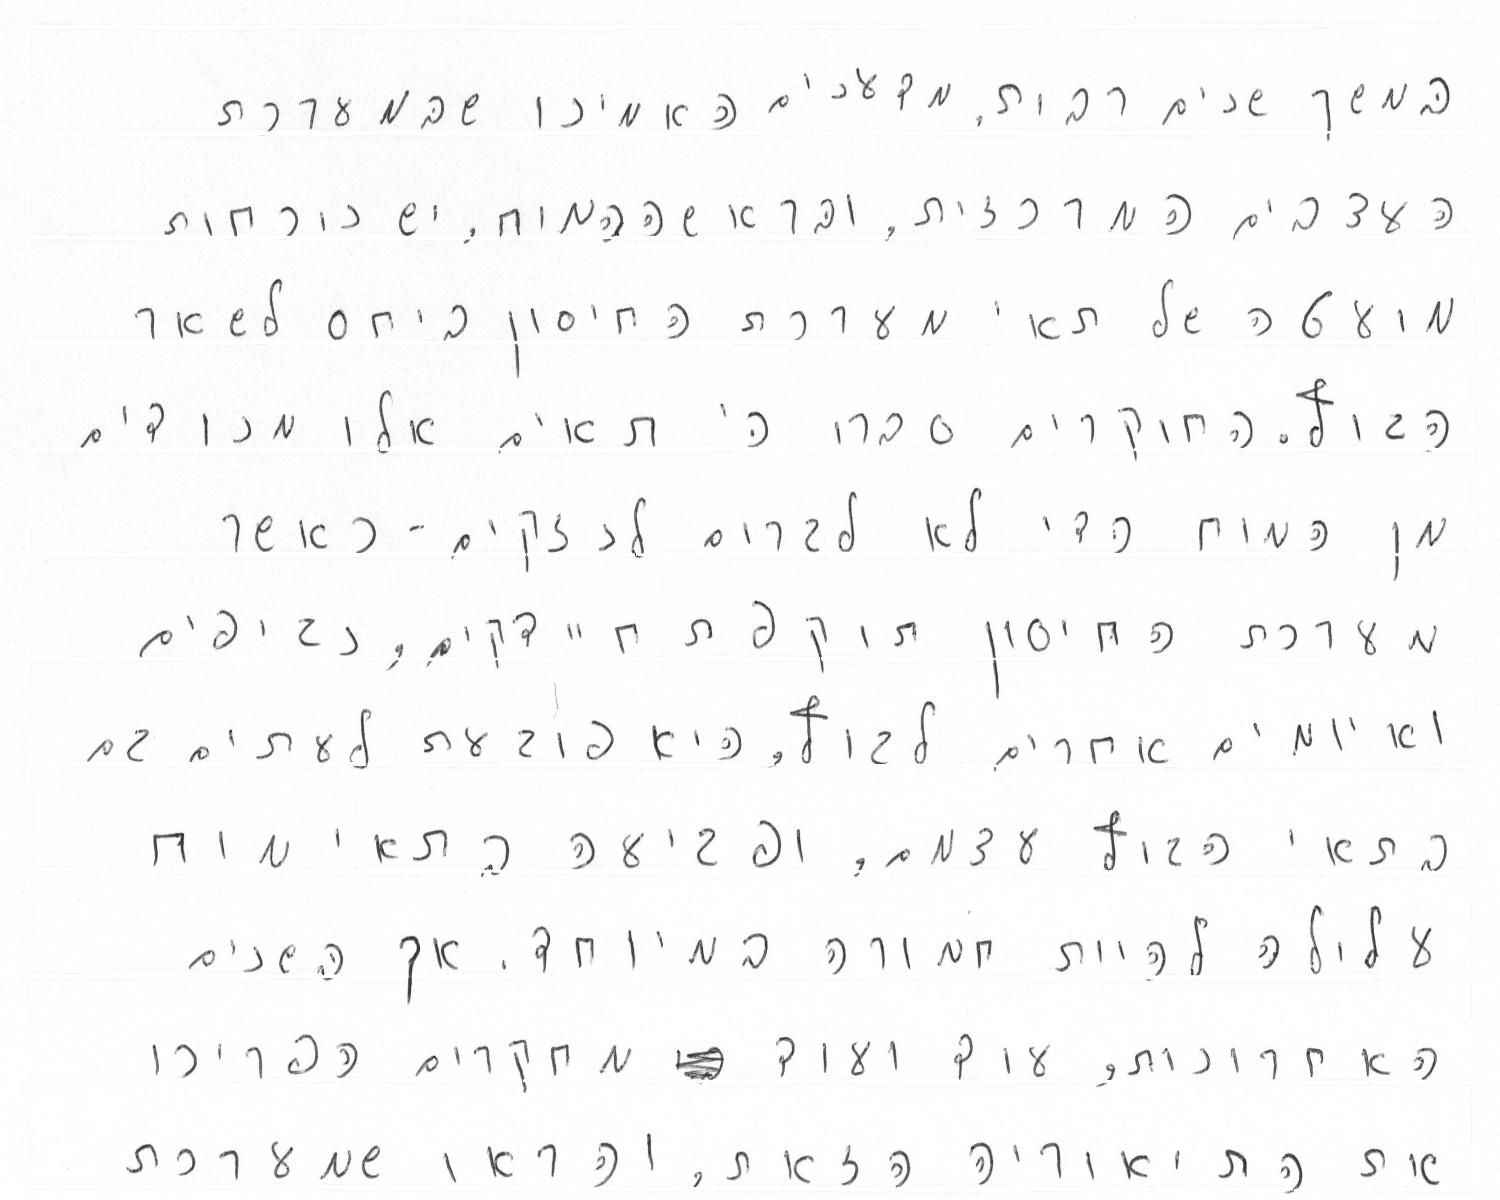 במשך שנים רבות, מדענים האמינו שבמערכת
העצבים המרכזית, ובראשה המוח, יש נוכחות
מועטה של תאי מערכת החיסון ביחס לשאר
הגוף. החוקרים סברו כי תאים אלו מנודים
מן המוח כדי לא לגרום לנזקים - כאשר
מערכת החיסון תוקפת חיידקים, נגיפים
ואיומים אחרים לגוף, היא פוגעת לעתים גם
בתאי הגוף עצמם, ופגיעה בתאי מוח
עלולה להיות חמורה במיוחד. אך השנים
האחרונות, עוד ועוד מחקרים הפריכו
את התיאוריה הזאת, והראו שמערכת